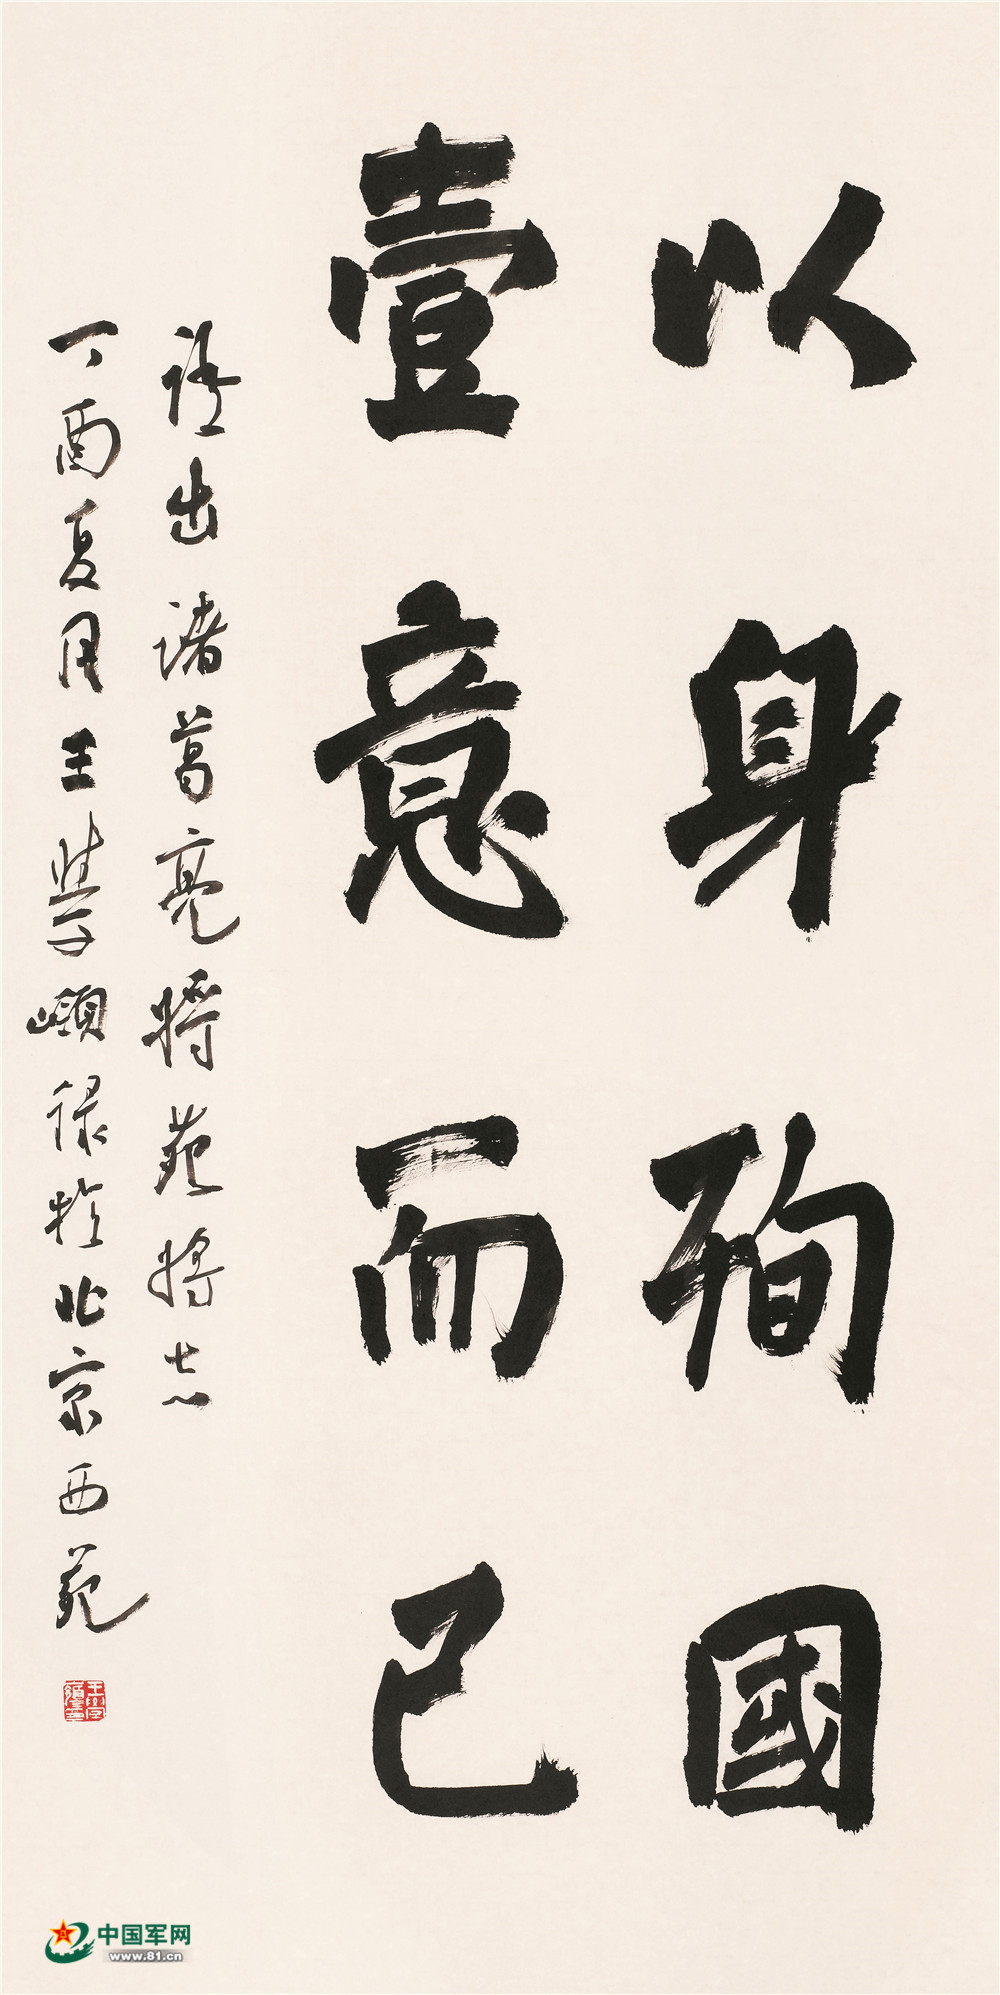 以身殉國
壹意而已
語出諸葛亮將苑將志
丁酉夏月王學嶺録於北京西苑
中国军网
www.81.cn